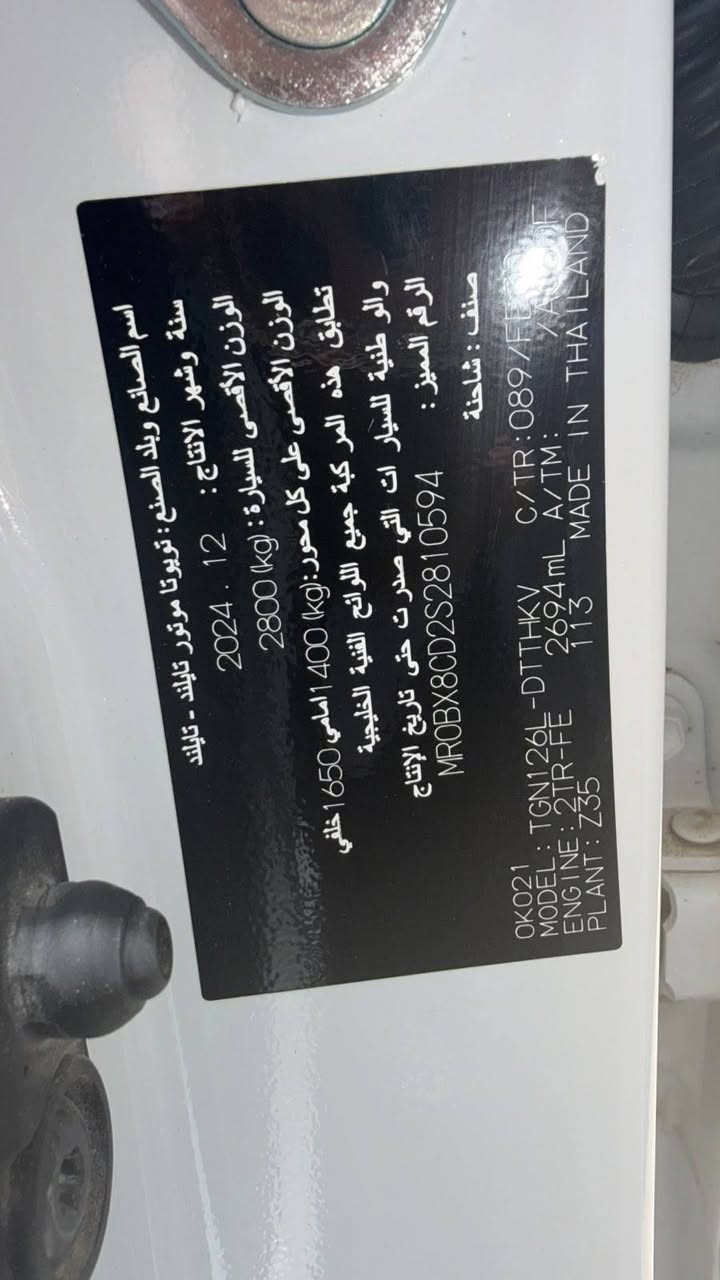 اسم الصانع وبلد الصنع : تويوتا موتور تايلند - تايلند
سنة وشهر الانتاج : 2024 . 12
الوزن الأقصى للسيارة : 2800 (kg)
الوزن الأقصى على كل محور: (kg) 1400 امامي 1650 خلفي
تطابق هذه المركبة جميع اللوائح الفنية الخليجية
والو طنية للسيار ات التي صدرت حتى تاريخ الإنتاج
الرقم المميز : MR0BX8CD2S2810594
صنف : شاحنة
0K021
MODEL: TGN126L-DTTHKV C/TR:089/
ENGINE: 2TR-FE 2694mL A/TM:
PLANT: Z35 113 MADE IN THAILAND